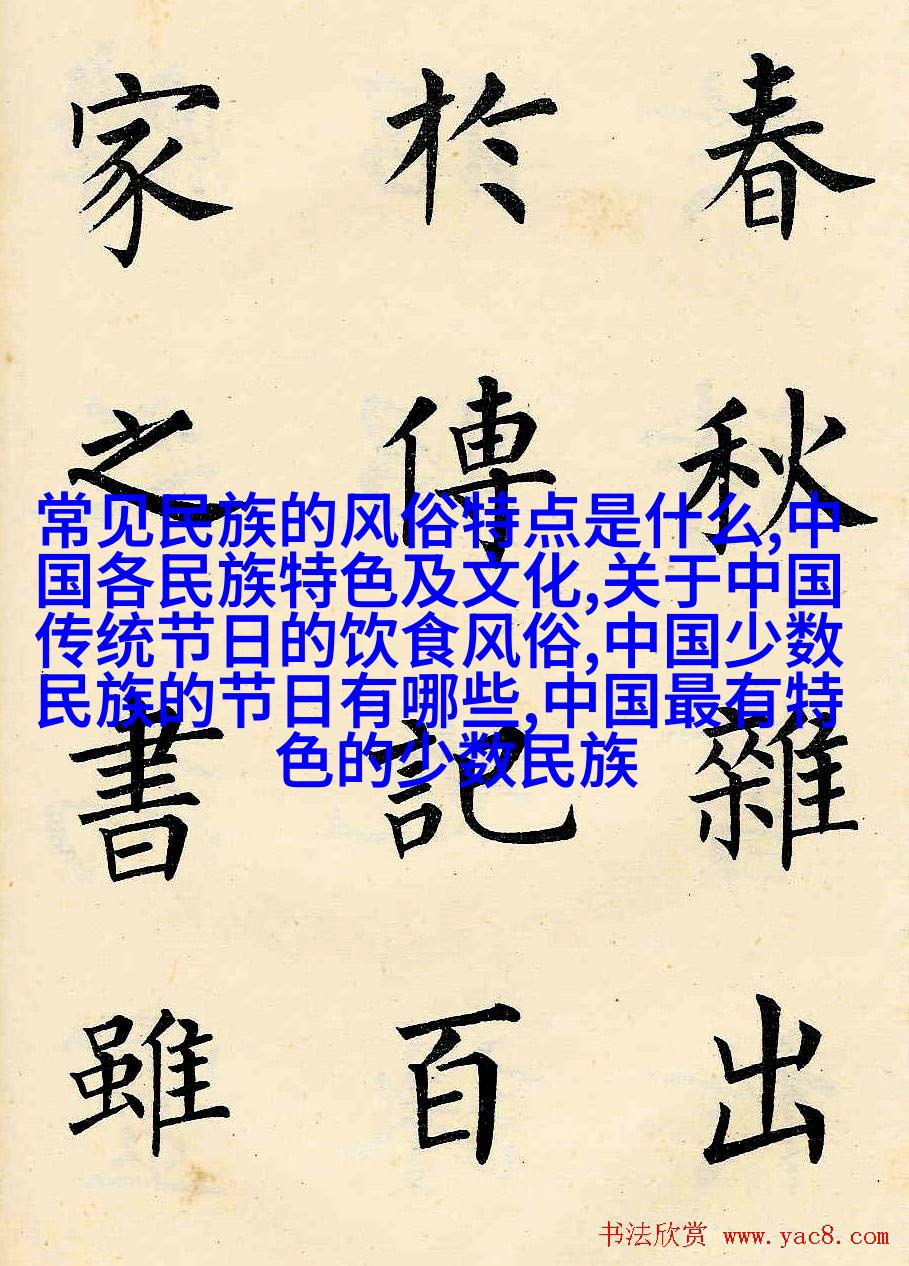 春秋雜出
於傳記百
家之書雖
常见民族的风俗特点是什么,中
国各民族特色及文化,关于中国
传统节日的饮食风俗,中国少数
民族的节日有哪些,中国最有特
色的少数民族
书法欣赏 www.yac8.com